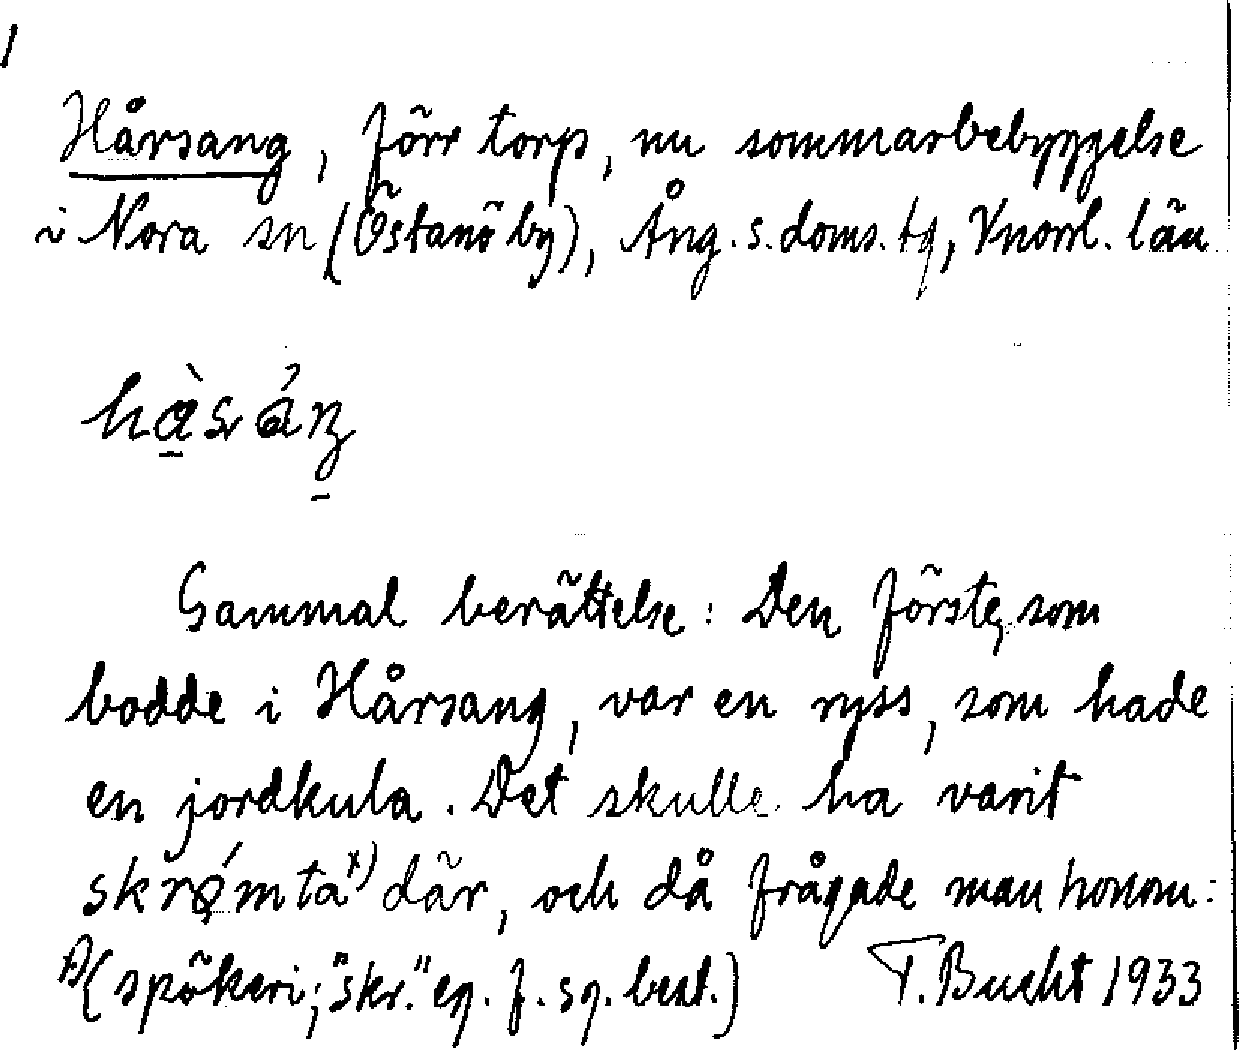 1
Hårsang, förr torp, nu sommarbebyggelse
i Nora sn (Östanö by), Ång. s. doms. tg, Vnorrl. län
Gammal berättelse: Den förste, som
bodde i Hårsang, var en ryss, som hade
en jordkula. Det skulle ha varit
skrǿmta x) där, och då frågade man honom:
x) (spökeri; "skr." eg. f. sg. best.) T. Bucht 1933